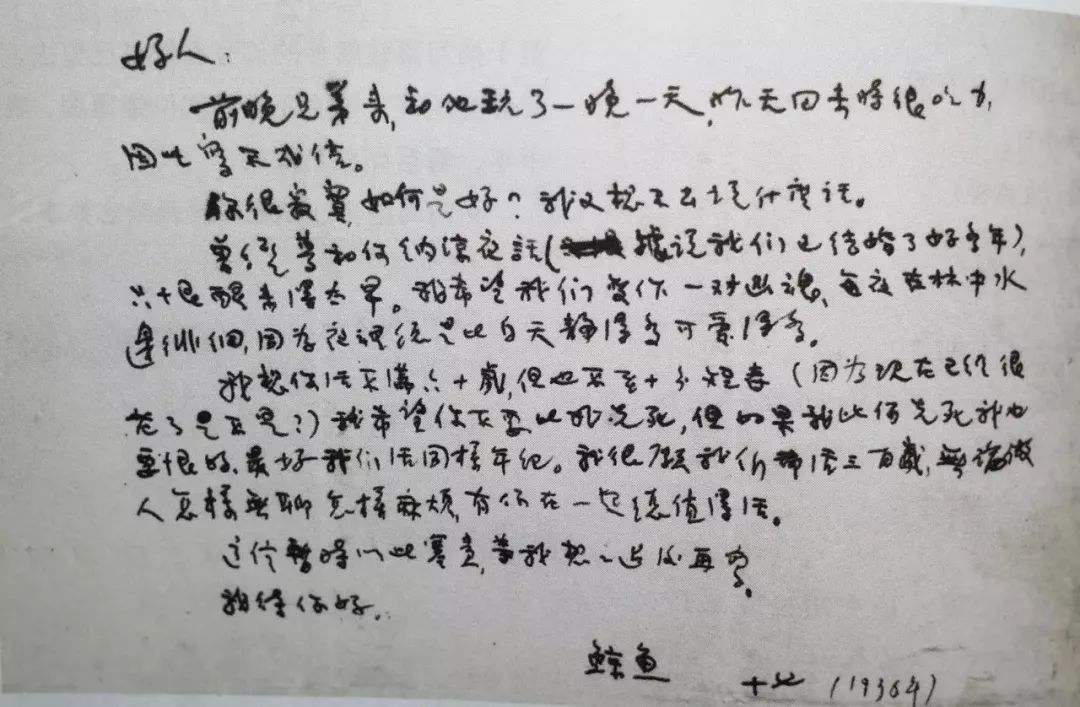 好人：
前晚兄弟来，和他玩了一晚一天，昨天回去時很吃力，
因此写不成信。
你很寂寞，如何是好？我又想不出说什麽话。
曾经夢和你纳凉夜話（據说我们已结婚了好多年），
只恨醒来得太早。我希望我们变作一对幽魂，每夜在林中水
邊徘徊，因为夜裡總是比白天静得多可爱得多。
我想你活不满六十歲，但也不至十分短壽（因为现在已经很
老了是不是？）我希望你不要比我先死，但如果我比你先死我也
要恨的，最好我们活同樣年纪。我很願我们都活三百歲，無論做
人怎樣無聊怎樣麻煩，有你在一起總值得活。
这信暫時以此塞责，等我想想过後再写。
我待你好。
鲸鱼
十七 (1936 4)